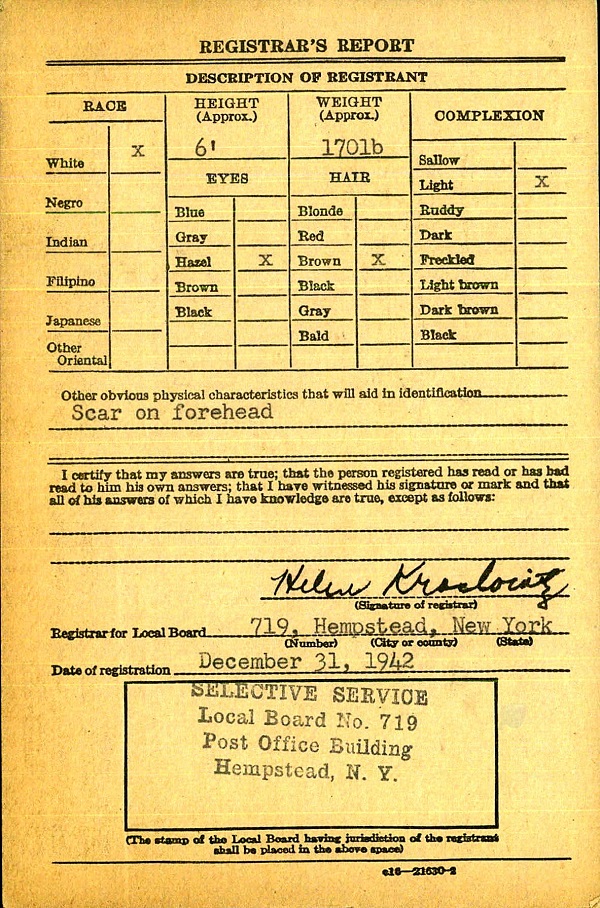 REGISTRAR'S REPORT
DESCRIPTION OF REGISTRANT
RACE
HEIGHT
(Approx.)
WEIGHT
(Approx.)
COMPLEXION
White X
6'
170lb
EYES
HAIR
Sallow
Light X
Negro
Blue
Blonde
Ruddy
Indian
Gray
Red
Dark
Hazel X
Brown X
Freckled
Filipino
Brown
Black
Light brown
Japanese
Black
Gray
Dark brown
Other
Oriental
Bald
Black
Other obvious physical characteristics that will aid in identification
Scar on forehead
I certify that my answers are true; that the person registered has read or has had
read to him his own answers; that I have witnessed his signature or mark and that
all of his answers of which I have knowledge are true, except as follows:
Helen
(Signature of registrar)
Registrar for Local Board 719, Hempstead, New York
(Number) (City or county) (State)
Date of registration December 31, 1942
SELECTIVE SERVICE
Local Board No. 719
Post Office Building
Hempstead, N. Y.
(The stamp of the Local Board having jurisdiction of the registrant
shall be placed in the above space)
c16—21630-2